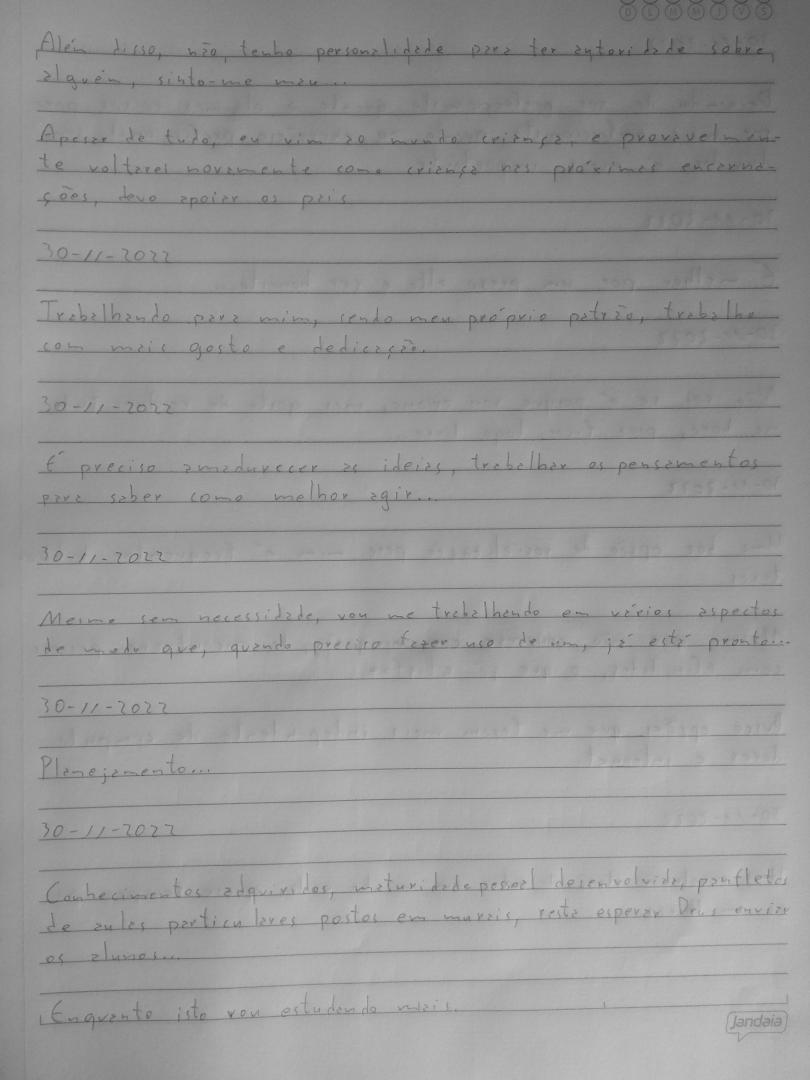 D S T Q Q S S
Além disso, não, tenho personalidade para ter autoridade sobre
alguém, sinto-me mau...
Apesar de tudo, eu vim ao mundo criança, e provavelmen-
te voltarei novamente como criança nas próximas encarna-
ções, devo apoiar os pais
30-11-2022
Trabalhando para mim, sendo meu próprio patrão, trabalho
com mais gosto e dedicação.
30-11-2022
É preciso amadurecer as ideias, trabalhar os pensamentos
para saber como melhor agir...
30-11-2022
Mesmo sem necessidade, vou me trabalhando em vários aspectos
de modo que, quando preciso fazer uso de um, já está pronto...
30-11-2022
Planejamento...
30-11-2022
Conhecimentos adquiridos, maturidade pessoal desenvolvida, panfletos
de aulas particulares postos em murais, resta esperar Deus enviar
os alunos...
Enquanto isto vou estudando mais.
Jandaia